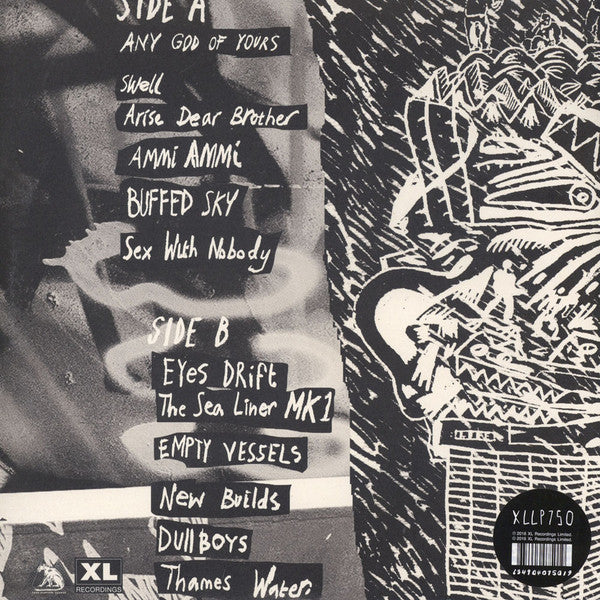 SIDE A
ANY GOD OF YOURS
Swell
Arise Dear Brother
AMMi AMMi
BUFFED SKY
Sex With Nobody
SIDE B
EYES DRiFt
The Sea Liner MK1
EMPTY VESSELS
New Builds
Dull Boys
Thames Water.
XL
RECORDINGS
XLLP750
℗ 2016 XL Recordings Limited.
© 2016 XL Recordings Limited.